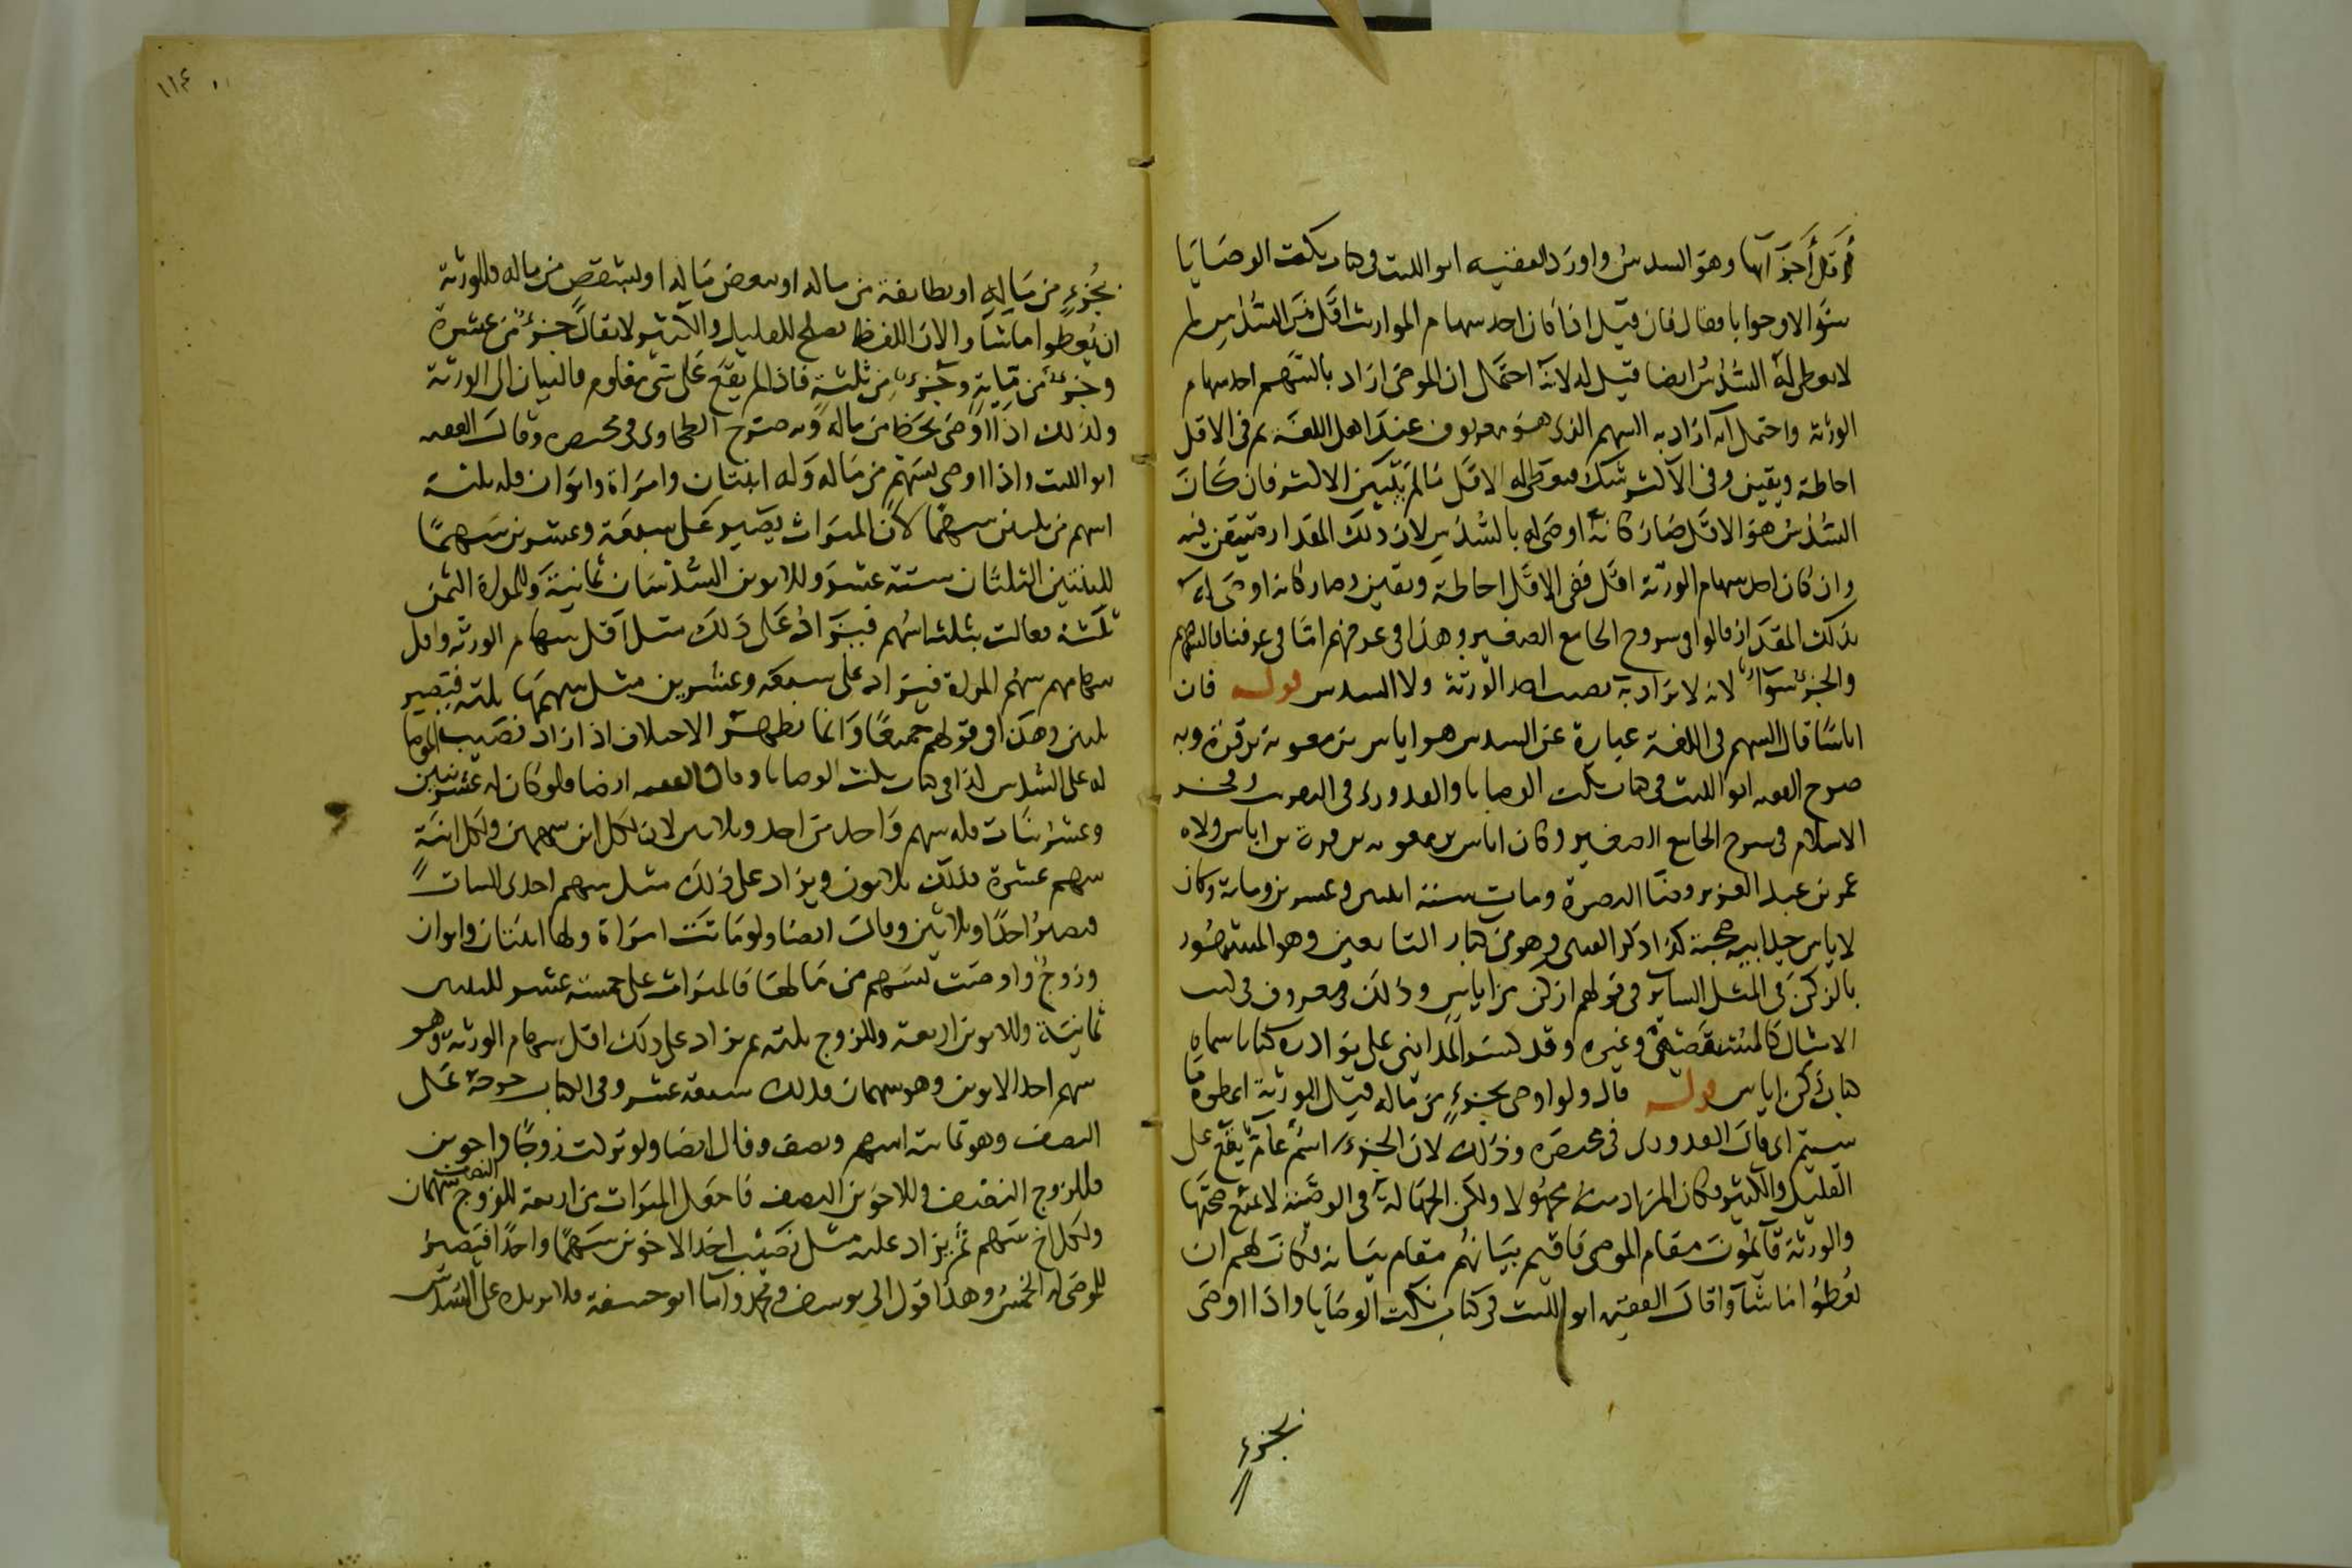 أقل أجزائها وهو السدس واورد الفقيه ابو الليث في كتاب نكت الوصايا
سؤالا وجوابا فقال فان قيل اذا كان احد سهام الموارث اقل من السدس لم
لا يعطى له السدس ايضا قيل له لانه احتمال ان الموصى اراد بالسهم احد سهام
الورثة واحتمل انه اراد به السهم الذي هو معروف عند اهل اللغة ثم في الاقل
احاطة ويقين وفي الاكثر شك فيعطى له الاقل ما لم يتبين الاكثر فان كان
السدس هو الاقل صار كانه اوصى له بالسدس لان ذلك المقدار متيقن فيه
وان كان احد سهام الورثة اقل ففي الاقل احاطة ويقين وصار كانه اوصى له
بذلك المقدار قالوا في شروح الجامع الصغير وهذا في عرفهم اما في عرفنا فالسهم
والجزء سواء لانه لا يراد به نصيب احد الورثة ولا السدس قوله فان
اياسا قال السهم في اللغة عبارة عن السدس هو اياس بن معوية بن قرة وبه
صرح الفقيه ابو الليث في كتاب نكت الوصايا والقدوري في التقريب وفخر
الاسلام في شرح الجامع الصغير وكان اياس بن معوية بن قرة بن اياس ولاه
عمر بن عبد العزيز قضا البصرة ومات سنة اثنين وعشرين ومائة وكان
لاياس جد ابيه صحبة كذا ذكر القتبي وهو من كبار التابعين وهو المشهور
بالزكن في المثل الساير في قولهم ازكن من اياس وذلك معروف في كتب
الامثال كالمستقصى وغيره وقد كسر المدايني على نوادره كتابا سماه
كتاب زكن اياس قوله قال ولو اوصى بجزء من ماله قيل للورثة اعطوه ما
شيتم اي قال القدوري في مختصره وذلك لان الجزء اسم عام يقع على
القليل والكثير فكان المراد منه مجهولا ولكن الجهالة في الوصية لا تمنع صحتها
والورثة قائمون مقام الموصي فاقيم بيانهم مقام بيانه فكان لهم ان
يعطوا ما شاؤا قال الفقيه ابو الليث في كتاب نكت الوصايا واذا اوصى
بجزء
١١٤
بجزء من ماله او بطايفة من ماله او ببعض ماله او بشقص من ماله فللورثة
ان يعطوا ما شاؤا لان اللفظ يصلح للقليل والكثير لا يقال جزء من عشرة
وجزء من مائة وجزء من ثلثة فاذا لم يقع على شيء معلوم فالبيان الى الورثة
ولذلك اذا اوصى بحظ من ماله وبه صرح الطحاوي في مختصره وقال الفقيه
ابو الليث واذا اوصى بسهم من ماله وله ابنتان وامراة وابوان فله ثلثة
اسهم من ثلثين سهما لان الميراث يصير على سبعة وعشرين سهما
للبنتين الثلثان ستة عشر وللابوين السدسان ثمانية وللمراة الثمن
ثلثة فعالت بثلثه اسهم فيزاد على ذلك مثل اقل سهام الورثه واقل
سهامهم سهم المراة فيزاد على سبعه وعشرين مثل سهمها ثلثة فيصير
ثلثين وهذا في قولهم جميعا وانما يظهر الاختلاف اذا زاد نصيب الموصا
له على السدس كذا في كتاب نكت الوصايا وقال الفقيه ايضا ولو كان له عشر بنين
وعشر بنات فله سهم واحد من احد وثلاثين لان لكل ابن سهمين ولكل ابنة
سهم عشرة فذلك ثلاثون ويزاد على ذلك مثل سهم احدى البنات
فيصير احدا وثلاثين وقال ايضا ولو ماتت امراة ولها ابنتان وابوان
وزوج واوصت بسهم من مالها فالميراث على خمسة عشر للبنتين
ثمانية وللابوين اربعة وللزوج ثلثة ثم يزاد على ذلك اقل سهام الورثة وهو
سهم احد الابوين وهو سهمان فذلك سبعة عشر وفي الكتاب خرجه على
النصف وهو ثمانية اسهم ونصف وقال ايضا ولو تركت زوجا واخوين
فللزوج النصف وللاخوين النصف فاجعل الميراث من اربعة للزوج النصف سهمان
ولكل اخ سهم ثم يزاد عليه مثل نصيب احد الاخوين سهما واحدا فيصير
للموصى له الخمس وهذا قول ابي يوسف ومحمد واما ابو حنيفة فلا يزيد على السدس